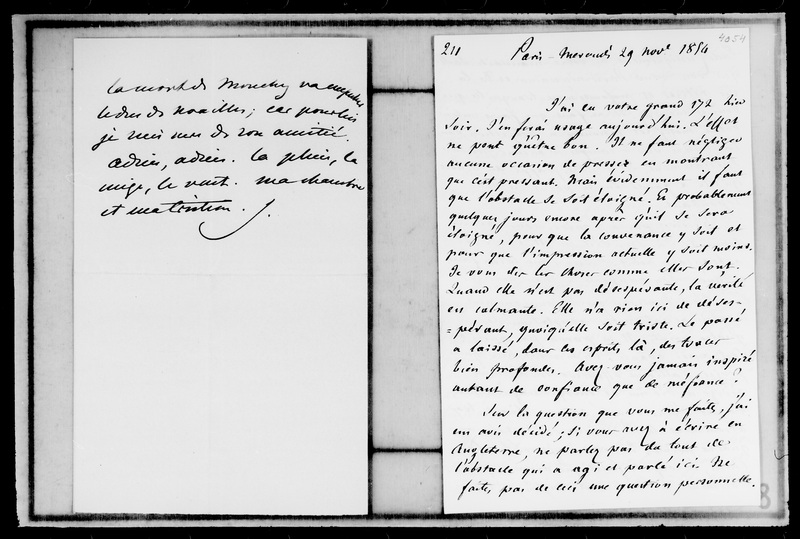 la mort de Mouchy va empêcher
le duc de Noailles; car pour lui
je suis sure de son amitié.
adieu, adieu. la pluie, la
neige, le vent. ma chambre
et ma J.
211
Paris - Mercredi 29 novᵉ 1854
4054
J'ai eu votre grand 172 hier
soir. J'en ferai usage aujourd'hui. L'effet
ne peut qu'être bon. Il ne faut négliger
aucune occasion de presser en montrant
que c'est pressant. Mais évidemment il faut
que l'obstacle se soit éloigné. Et probablement
quelques jours encore après qu'il se sera
éloigné, pour que la convenance y soit et
pour que l'impression actuelle y soit moins.
Je vous dis les choses comme elles sont.
Quand elle n'est pas désespérante, la vérité
est calmante. Elle n'a rien ici de déses-
=pérant, quoiqu'elle soit triste. Le passé
a laissé, dans les esprits là, des traces
bien profondes. Avez-vous jamais inspiré
autant de confiance que de méfiance?
Sur la question que vous me faites, j'ai
un avis décidé; si vous avez à écrire en
Angleterre, ne parlez pas du tout de
l'obstacle qui a agi et parlé ici. Ne
faites pas de ceci une question personnelle.
8